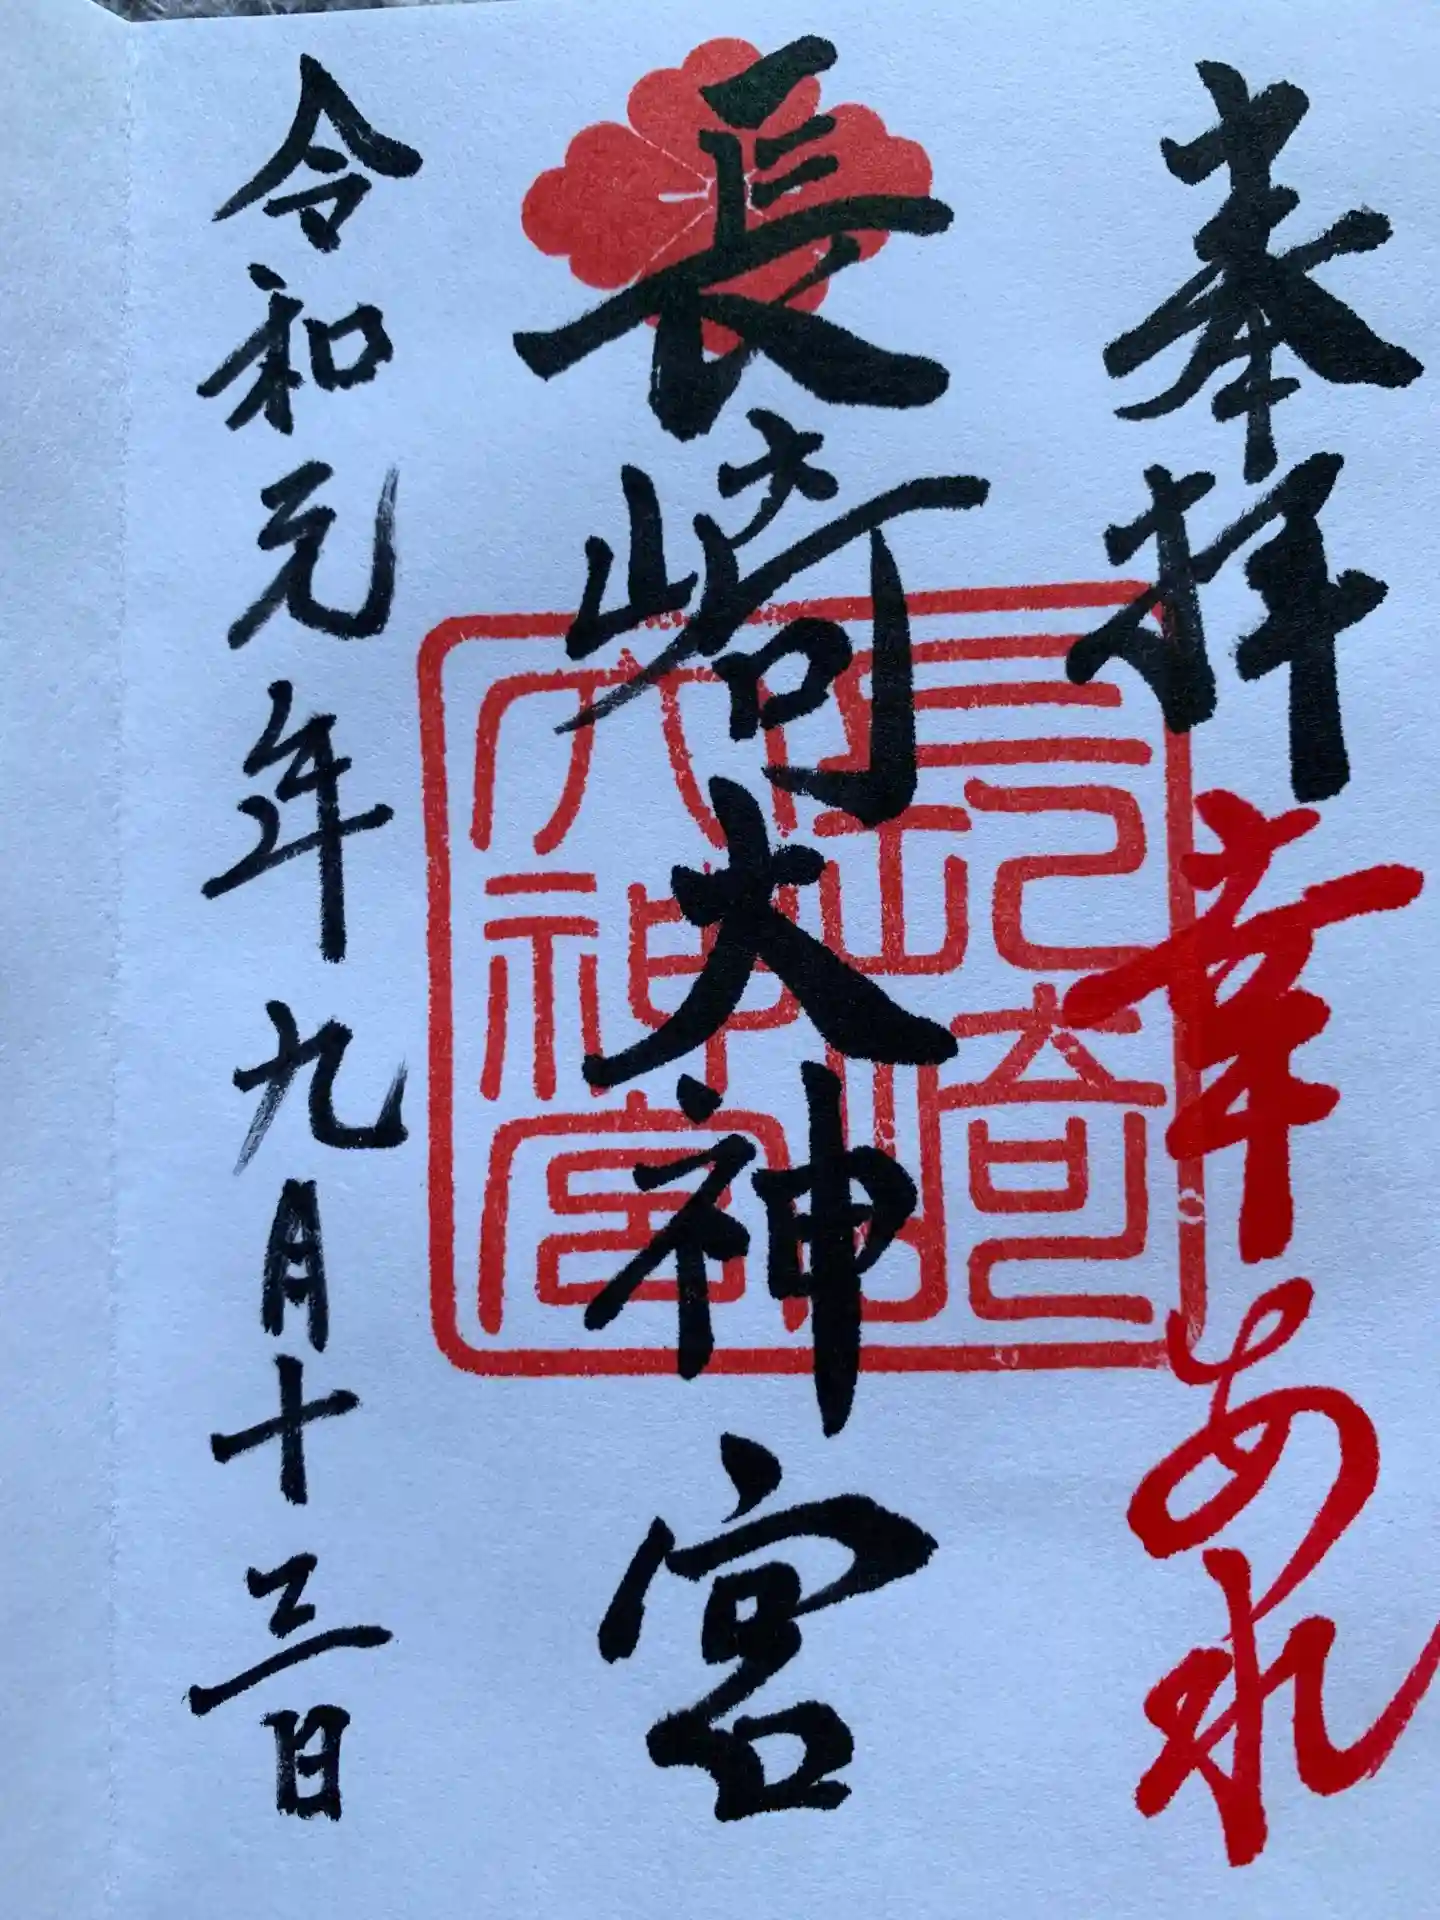 奉拝
幸あれ
長崎大神宮
長崎
大神宮
令和元年九月十三日